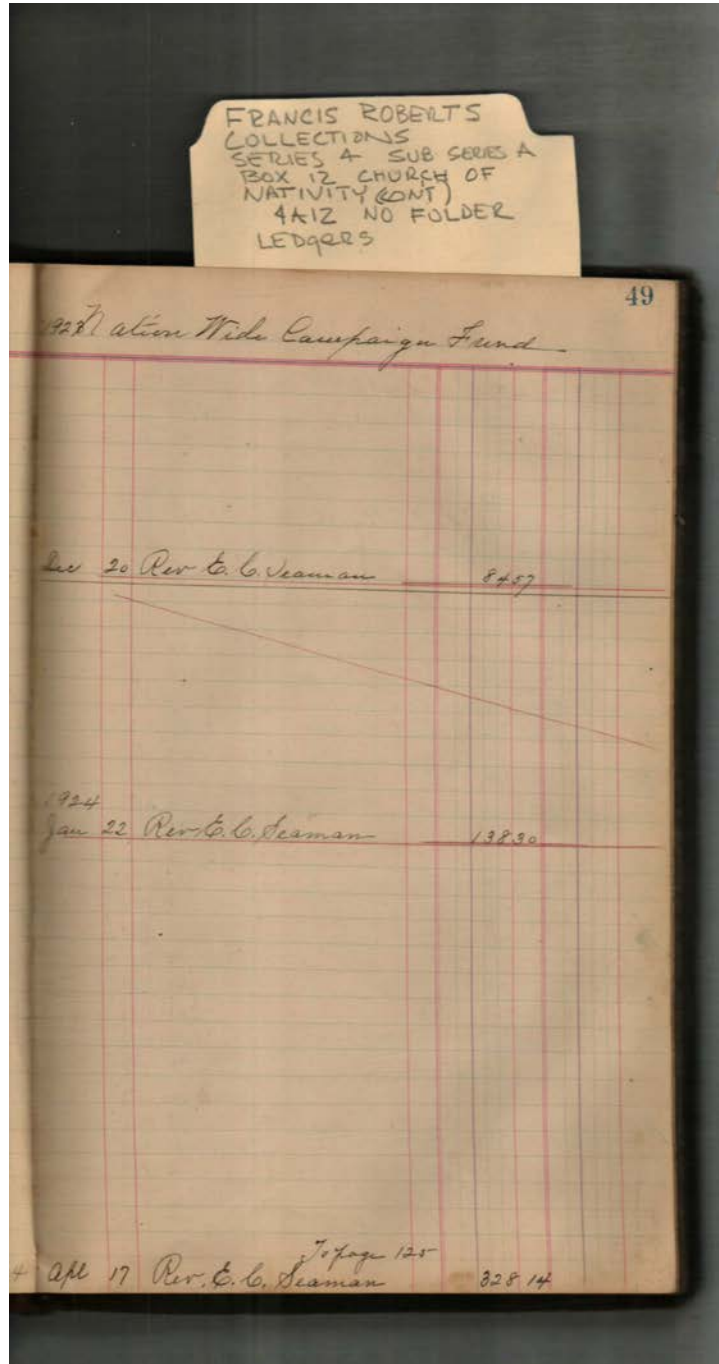 FRANCIS ROBERTS
COLLECTIONS
SERIES 4 SUB SERIES A
BOX 12 CHURCH OF
NATIVITY (CONT)
4A12 NO FOLDER
LEDgERS
49
Nation Wide Campaign Fund
Dec 20 Rev E. C. Seaman 84 57
1924
Jan 22 Rev. E. C. Seaman 138 30
To page 125
4 Apl 17 Rev. E. C. Seaman 328 14